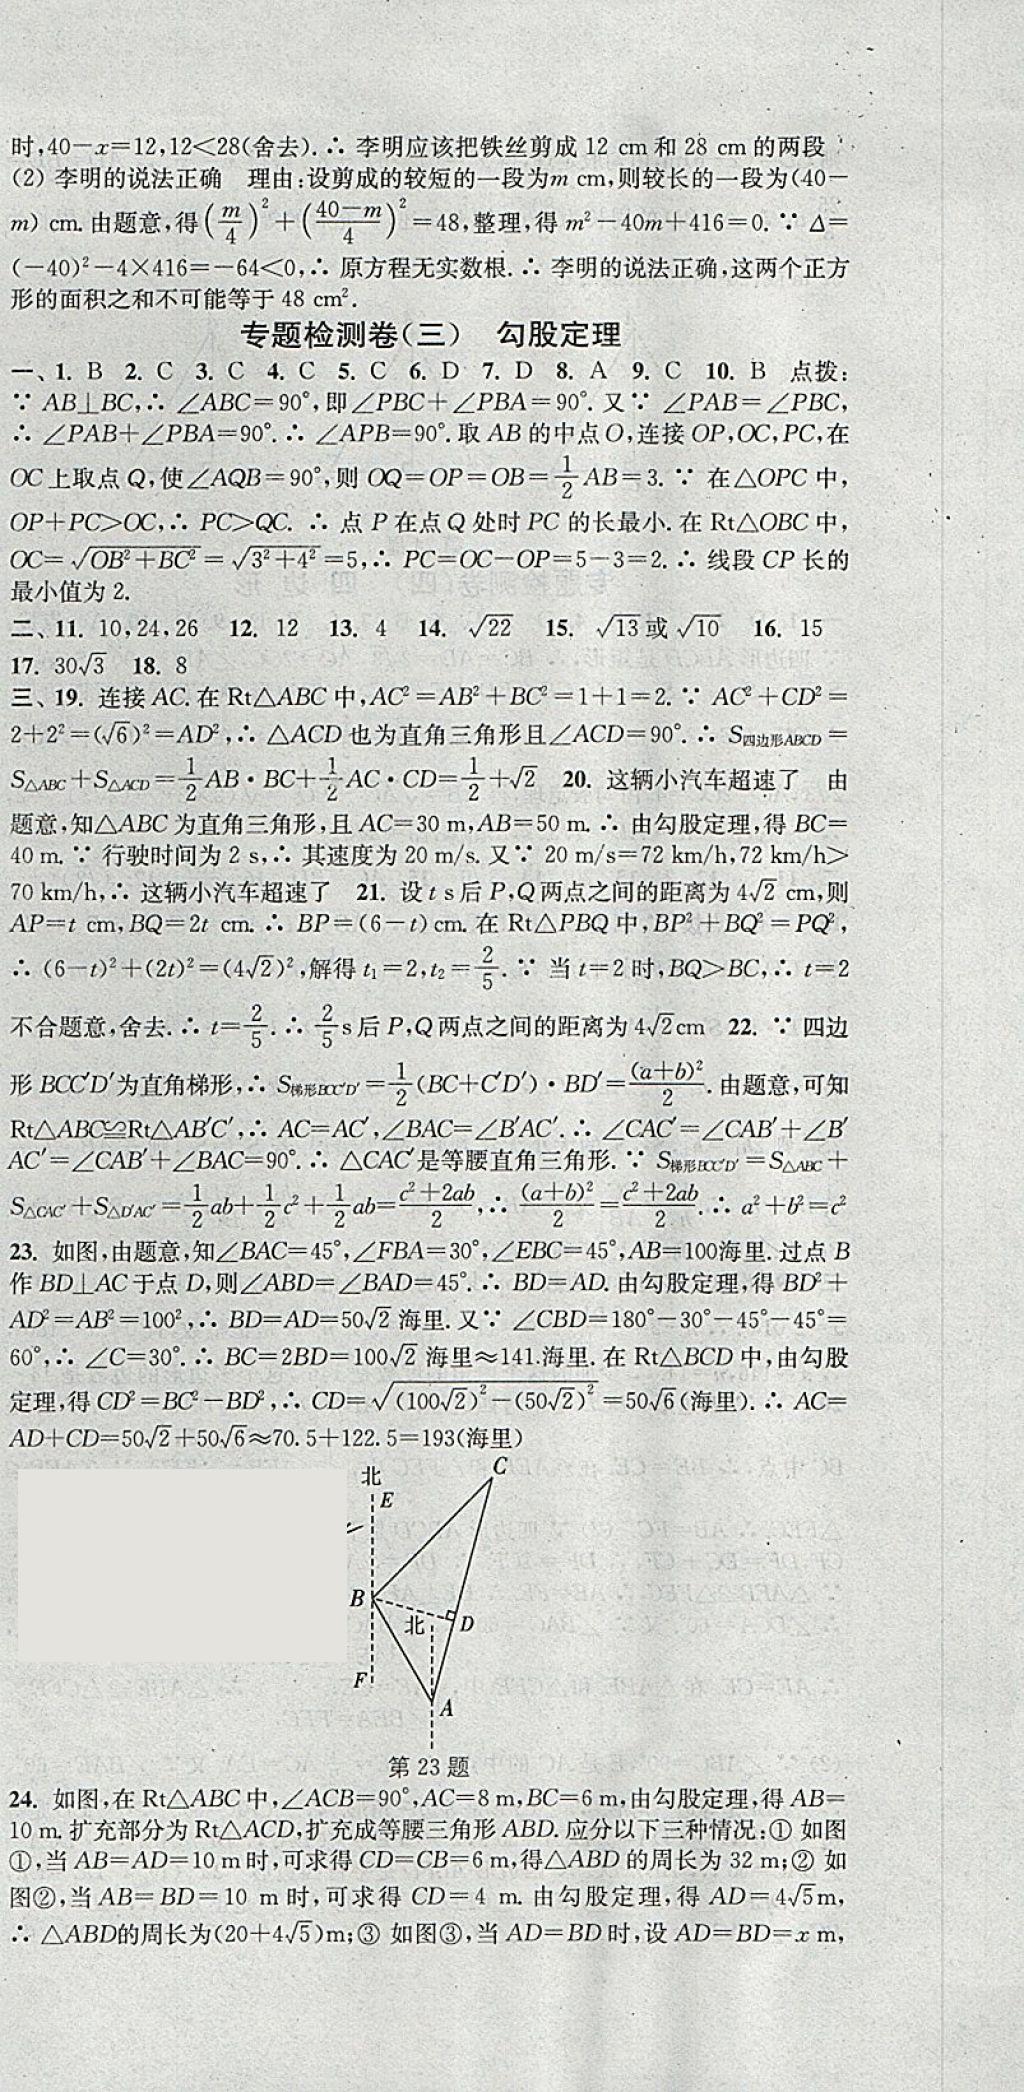 时,40-x=12,12<28(舍去).∴ 李明应该把铁丝剪成 12 cm 和 28 cm 的两段
(2) 李明的说法正确　理由:设剪成的较短的一段为m cm,则较长的一段为(40-
m) cm.由题意,得(m/4)²+((40-m)/4)²=48,整理,得 m²-40m+416=0.∵ Δ=
(-40)²-4×416=-64<0,∴ 原方程无实数根.∴ 李明的说法正确,这两个正方
形的面积之和不可能等于 48 cm².
专题检测卷(三)　勾股定理
一、1. B 2. C 3. C 4. C 5. C 6. D 7. D 8. A 9. C 10. B 点拨:
∵ AB⊥BC,∴ ∠ABC=90°,即∠PBC+∠PBA=90°.又∵ ∠PAB=∠PBC,
∴ ∠PAB+∠PBA=90°.∴ ∠APB=90°.取 AB 的中点O,连接 OP,OC,PC,在
OC上取点 Q,使∠AQB=90°,则 OQ=OP=OB=1/2AB=3.∵ 在△OPC 中,
OP+PC>OC,∴ PC>QC. ∴ 点 P 在点 Q 处时 PC 的长最小.在 Rt△OBC 中,
OC=√(OB²+BC²)=√(3²+4²)=5,∴ PC=OC-OP=5-3=2.∴ 线段 CP 长的
最小值为 2.
二、11. 10,24,26 12. 12 13. 4 14. √22 15. √13或√10 16. 15
17. 30√3 18. 8
三、19. 连接 AC.在 Rt△ABC 中,AC²=AB²+BC²=1+1=2.∵ AC²+CD²=
2+2²=(√6)²=AD²,∴ △ACD 也为直角三角形且∠ACD=90°.∴ S四边形ABCD=
S△ABC+S△ACD=1/2AB·BC+1/2AC·CD=1/2+√2 20. 这辆小汽车超速了　由
题意,知△ABC 为直角三角形,且 AC=30 m,AB=50 m.∴ 由勾股定理,得 BC=
40 m.∵ 行驶时间为 2 s,∴ 其速度为 20 m/s.又∵ 20 m/s=72 km/h,72 km/h>
70 km/h,∴ 这辆小汽车超速了　21. 设 t s后 P,Q两点之间的距离为 4√2 cm,则
AP=t cm,BQ=2t cm.∴ BP=(6-t)cm.在 Rt△PBQ 中,BP²+BQ²=PQ²,
∴ (6-t)²+(2t)²=(4√2)²,解得 t₁=2,t₂=2/5.∵ 当 t=2 时,BQ>BC,∴ t=2
不合题意,舍去.∴ t=2/5.∴ 2/5s后 P,Q两点之间的距离为 4√2cm 22. ∵ 四边
形 BCC′D′为直角梯形,∴ S梯形BCC′D′=1/2(BC+C′D′)·BD′=(a+b)²/2.由题意,可知
Rt△ABC≌Rt△AB′C′,∴ AC=AC′,∠BAC=∠B′AC′.∴ ∠CAC′=∠CAB′+∠B′
AC′=∠CAB′+∠BAC=90°.∴ △CAC′是等腰直角三角形.∵ S梯形BCC′D′=S△ABC+
S△CAC′+S△D′AC′=1/2ab+1/2c²+1/2ab=(c²+2ab)/2,∴ (a+b)²/2=(c²+2ab)/2.∴ a²+b²=c²
23. 如图,由题意,知∠BAC=45°,∠FBA=30°,∠EBC=45°,AB=100海里.过点 B
作 BD⊥AC于点 D,则∠ABD=∠BAD=45°.∴ BD=AD.由勾股定理,得 BD²+
AD²=AB²=100²,∴ BD=AD=50√2 海里.又∵ ∠CBD=180°-30°-45°-45°=
60°,∴ ∠C=30°.∴ BC=2BD=100√2 海里≈141海里.在 Rt△BCD 中,由勾股
定理,得 CD²=BC²-BD²,∴ CD=√((100√2)²-(50√2)²)=50√6(海里).∴ AC=
AD+CD=50√2+50√6≈70.5+122.5=193(海里)
C
北
E
B
北
D
F
A
第 23 题
24. 如图,在 Rt△ABC 中,∠ACB=90°,AC=8 m,BC=6 m,由勾股定理,得 AB=
10 m.扩充部分为 Rt△ACD,扩充成等腰三角形 ABD.应分以下三种情况:① 如图
①,当 AB=AD=10 m时,可求得 CD=CB=6 m,得△ABD 的周长为 32 m;② 如
图②,当 AB=BD=10 m 时,可求得 CD=4 m.由勾股定理,得 AD=4√5m,
∴ △ABD的周长为(20+4√5)m;③ 如图③,当 AD=BD 时,设 AD=BD=x m,